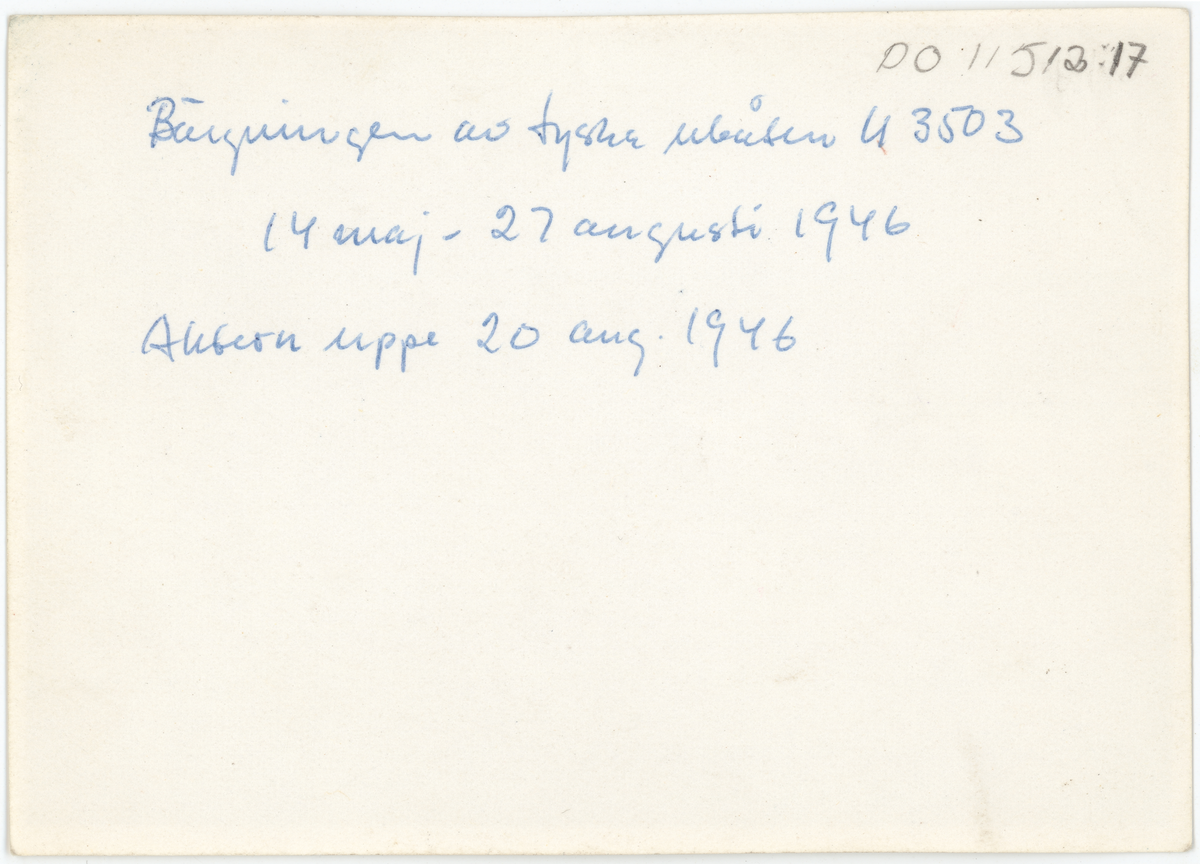 DO 11512:17
Bärgningen av tyska ubåten U 3503
14 maj - 27 augusti 1946
Aktern uppe 20 aug. 1946